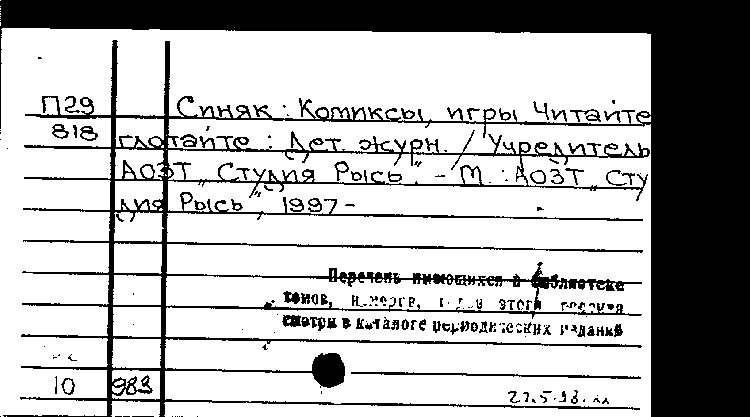 П29 Синяк : Комиксы, игры Читайте
818 глотайте : Дет. журн. / Учредитель
АОЗТ „Студия Рысь". - М. : АОЗТ „Сту
дия Рысь", 1997 -
Перечень имеющихся в библиотеке
томов, номеров, года этого издания
смотри в каталоге периодических изданий
10 983
27.5.98.